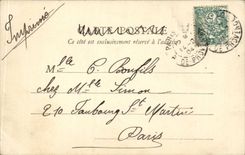 CARTE POSTALE
Ce côté est exclusivement réservé à l'adresse
Imprimé
Mlle C. Bonfils
chez Mlle Simon
210 Faubourg St Martin
Paris